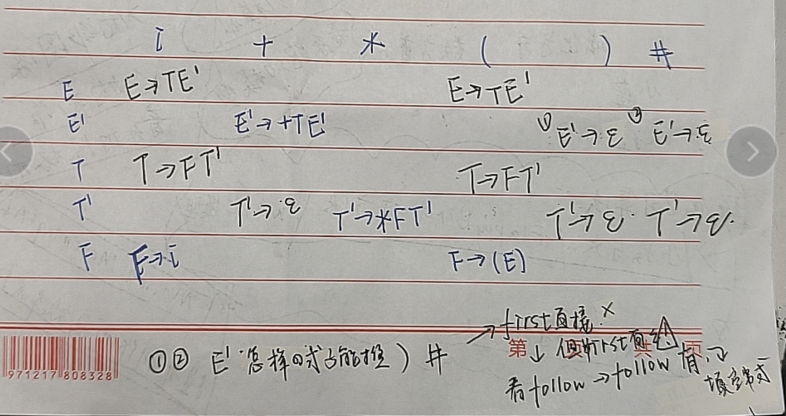 i + * ( ) #
E E→TE' E→TE'
E' E'→+TE' ① E'→ε ② E'→ε
T T→FT' T→FT'
T' T'→ε T'→*FT' T'→ε T'→ε
F F→i F→(E)
①② E' 怎样的式子能推 ) # → first直接 ×
第 共 页
看follow→follow有
971217 808328